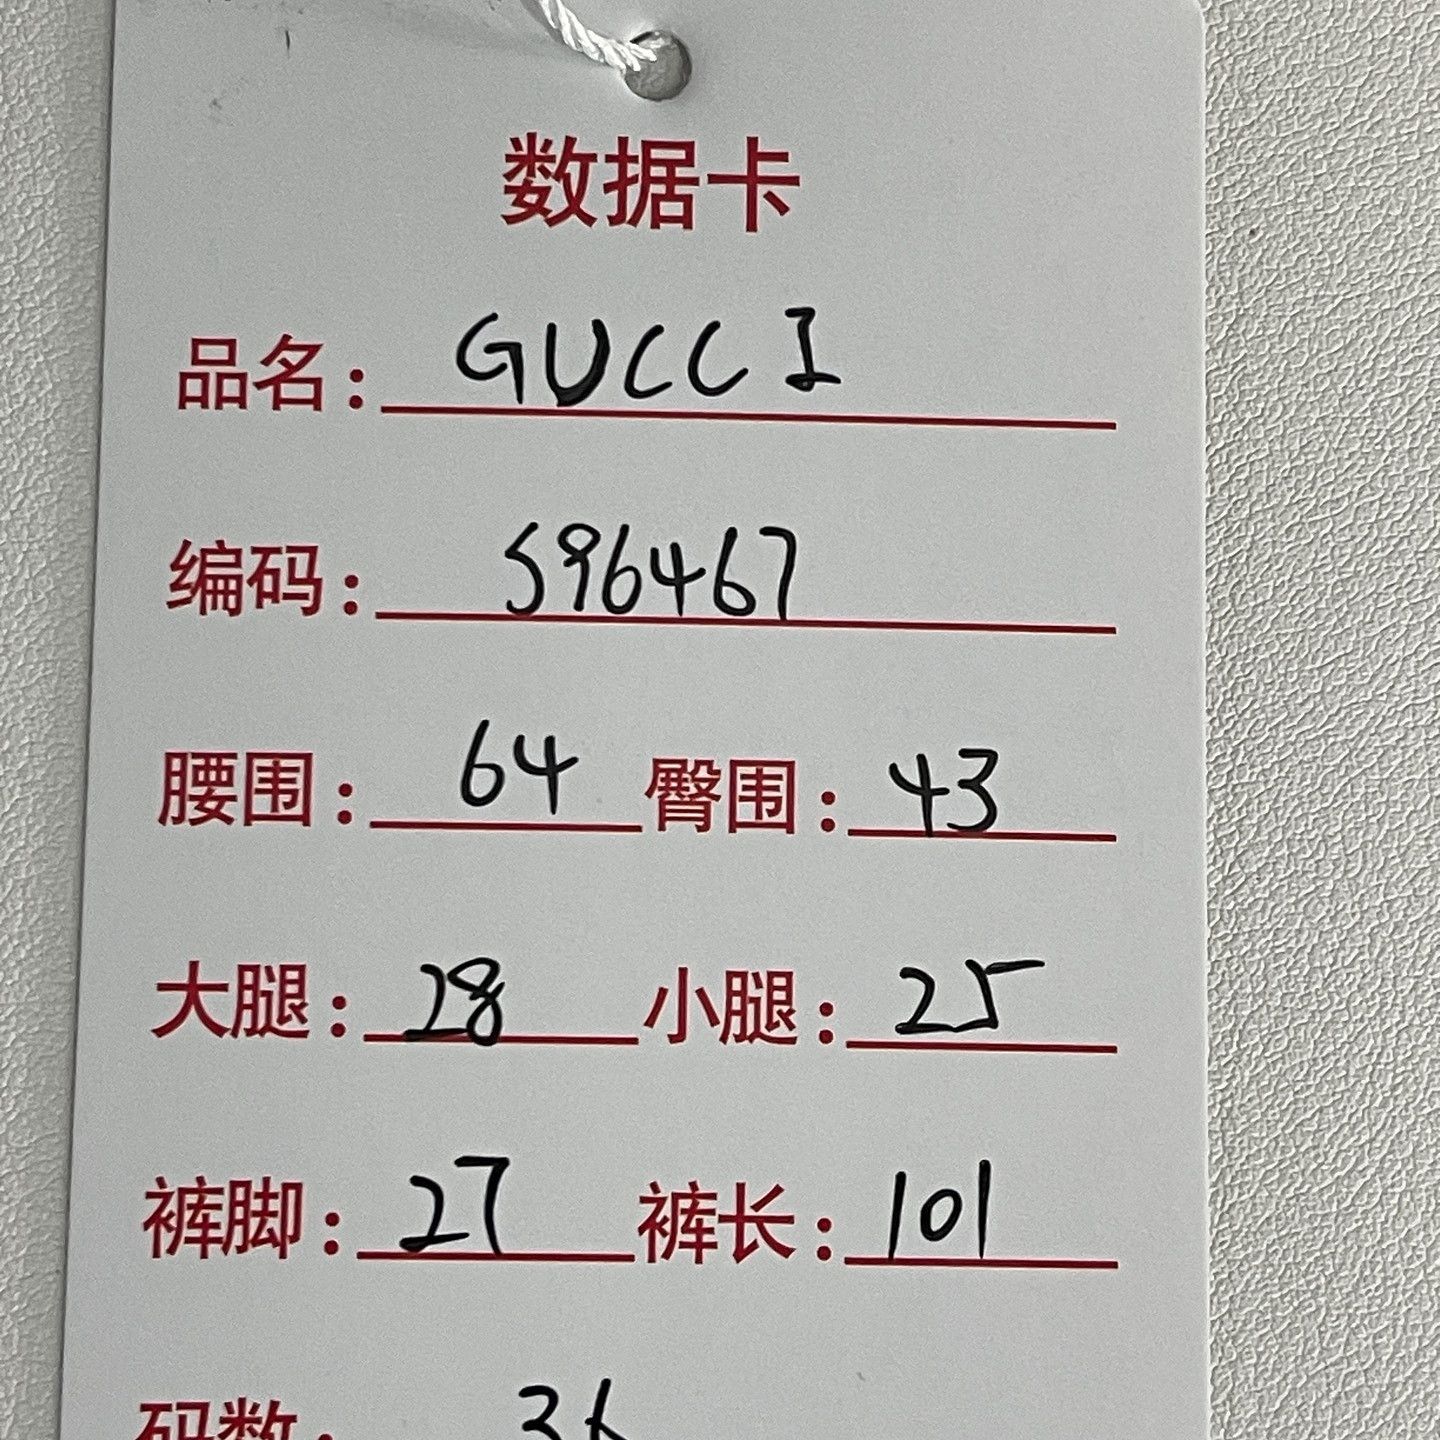 数据卡
品名：GUCCI
编码：596467
腰围：64 臀围：43
大腿：28 小腿：25
裤脚：27 裤长：101
码数：36